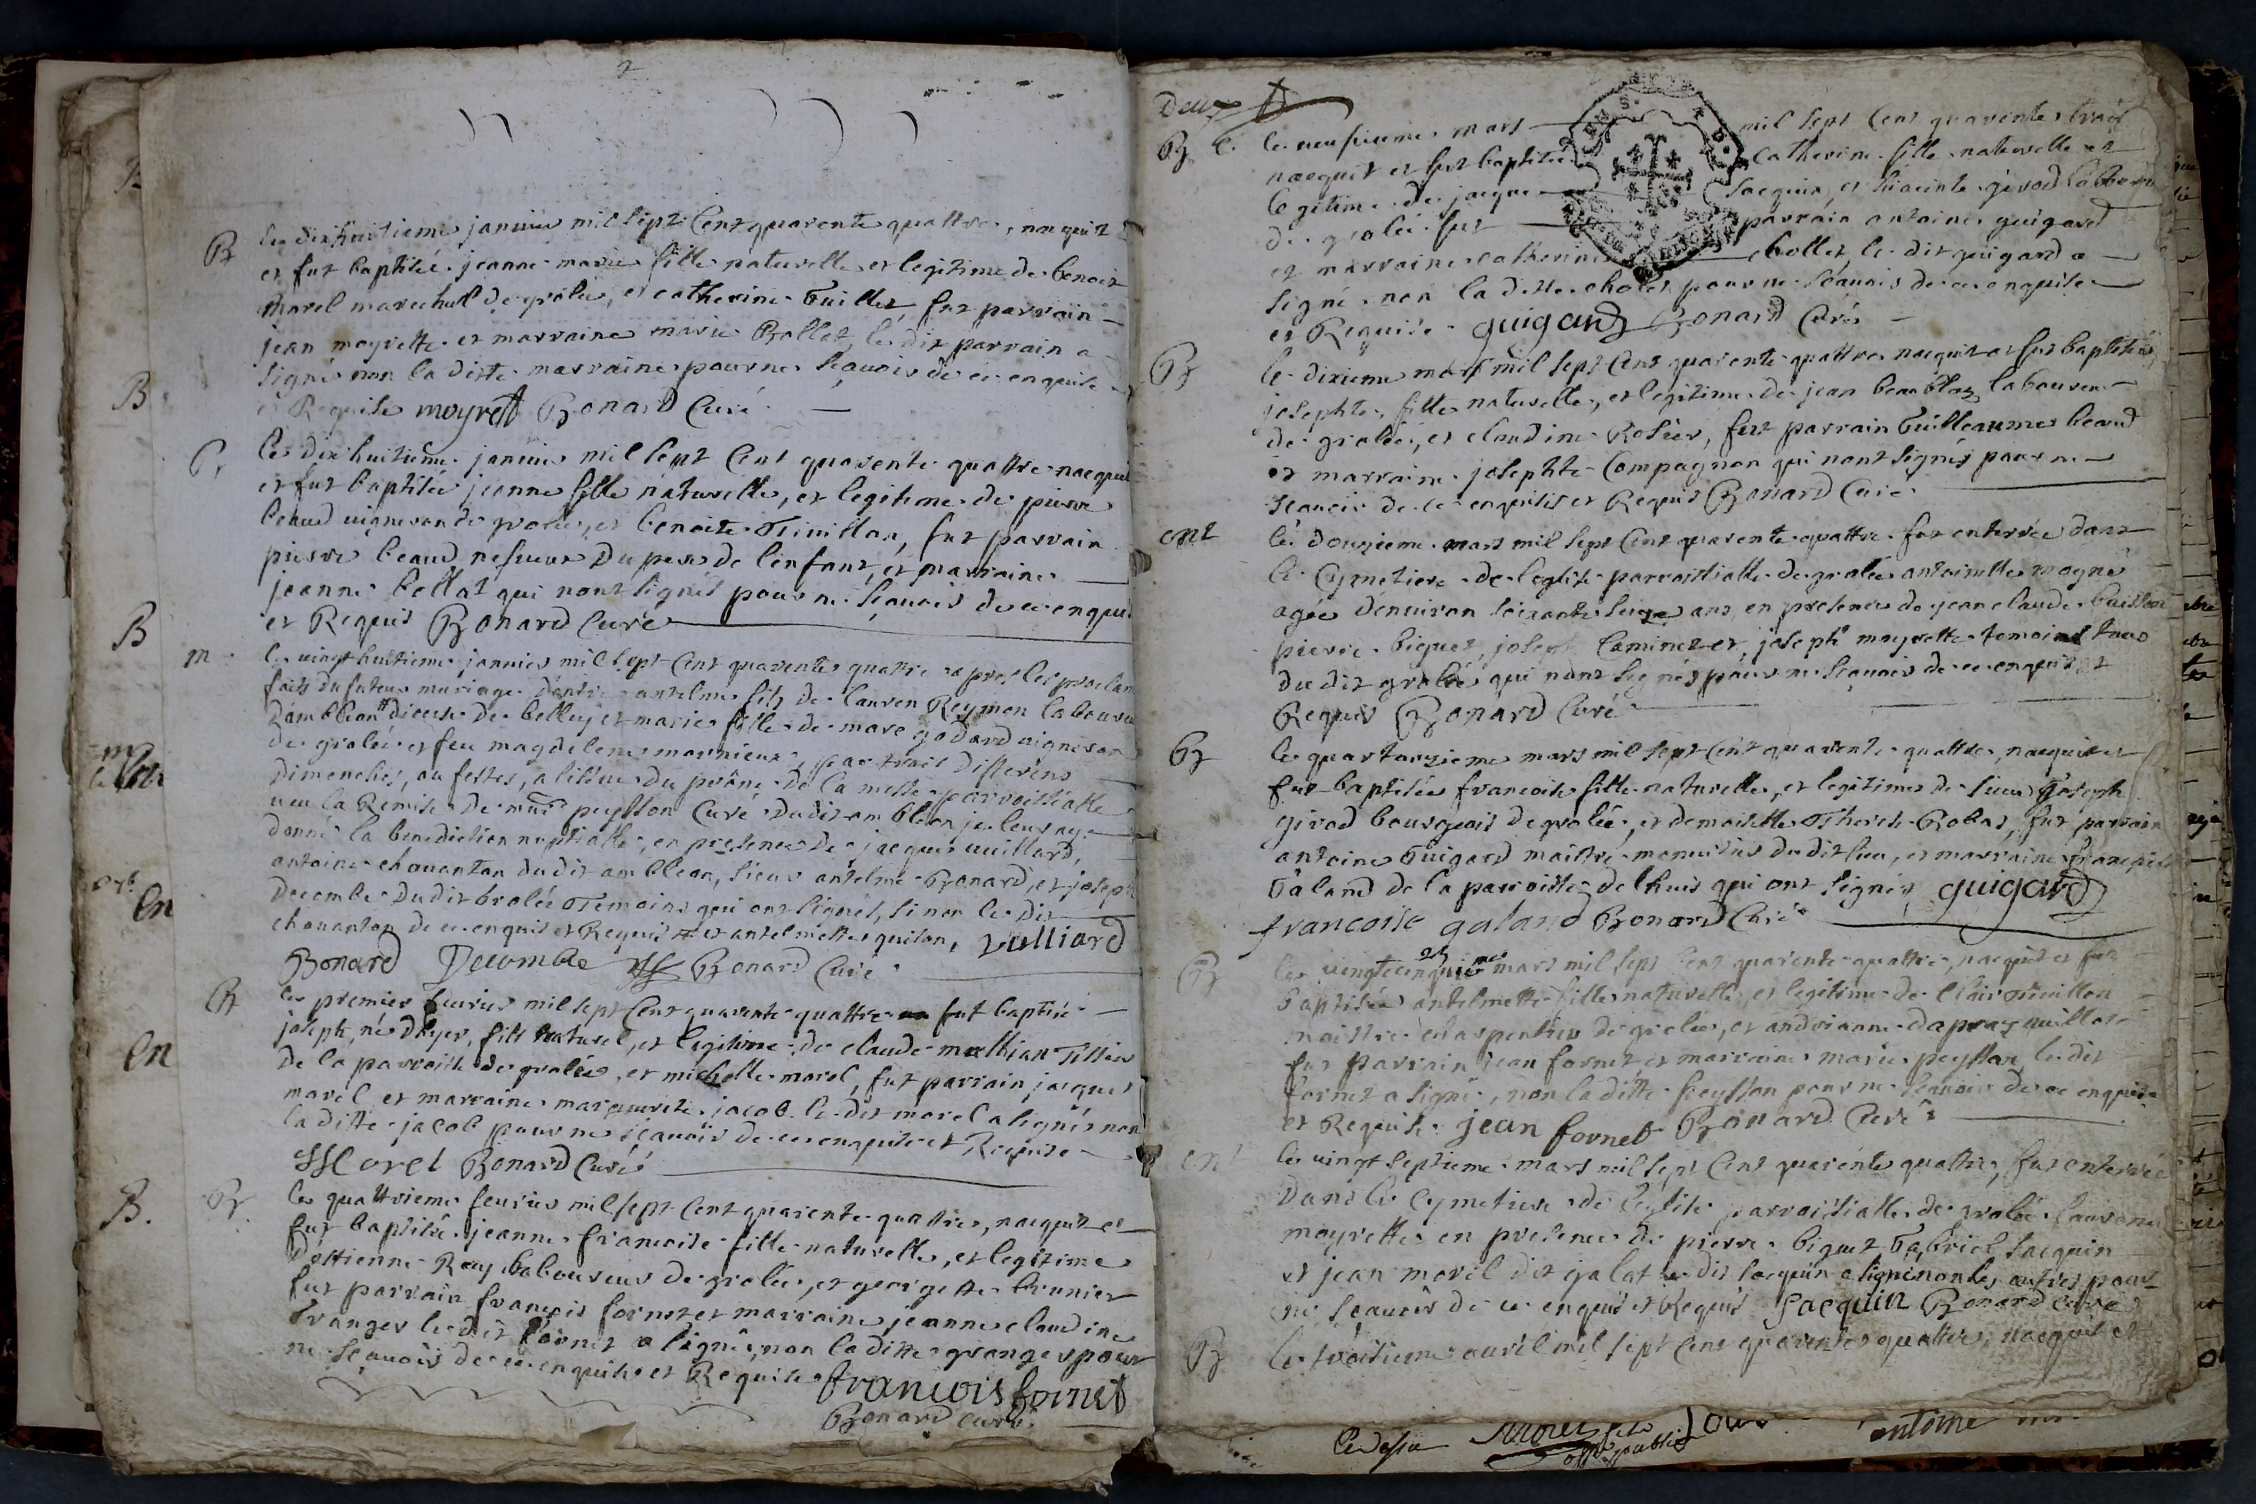 2
B
le dixhuitieme janvier mil sept cent quarente quattre, nacquit
et fut baptisée jeanne marie fille naturelle et legitime de benoit
morel marechal de grolée, et catherine Guillet, fut parrain
jean moyrette et marraine marie Bollet, le dit parrain a
signé non la ditte marraine pour ne sçavoir de ce enquise
et Requise moyret Bonard Curé
B
le dix huitieme janvier mil sept cent quarente quattre nacquit
et fut baptisée jeanne fille naturelle, et legitime de pierre
beaud vigneron de grolée, et benoite Trouillon, fut parrain
pierre beaud, nefveur du pere de l'enfant, et marraine
jeanne bollat qui n'ont signés pour ne sçavoir de ce enquis
et Requis Bonard Curé
m
le vingt huitieme janvier mil sept cent quarente quattre apres les proclam
faits du futeur mariage d'entre antelme fils de lauren Reymon laboureur
d'ambleon diocese de belley et marie fille de marc godard vigneron
de grolée et feu magdelene marnieux, par trois differens
dimenches, ou festes, a l'issue du prône de la messe parroissialle
veu la Remise de peysson Curé dudit ambleon je leur ay
donné la benediction nuptialle, en presence de jacque vuillard,
antoine chouanton dudit ambleon, sieur antelme Bonard, et joseph
decomble dudit grolée Temoins qui ont signés, sinon le dit
chouanton de ce enquis et Requis et antelmette quison, vulliard
Bonard Decomble Bonard Curé
B
le premier fevrier mil sept cent quarente quattre fut baptisé
joseph, né d'hyer, fils naturel, et legitime de claude Tissier
de la parroisse de grolée, et michelle morel, fut parrain jacques
morel et marraine marguerite jacob le dit morel a signé non
la ditte jacob pour ne sçavoir de ce enquise et Requise
Morel Bonard Curé
B
le quattrieme fevrier mil sept cent quarente quattre, nacquit et
fut baptisée jeanne francoise fille naturelle, et legitime
d'estienne Rey laboureur de grolée, et georgette brunier
fut parrain françois fornet et marraine jeanne claudine
granger le dit fornet a signé, non la ditte granger pour
ne sçavoir de ce enquise et Requise francois fornet
Bonard curé
B
B
en
en
B.
Deux
B
le neufvieme mars mil sept cent quarente trois
nacquit et fut baptisée catherine fille naturelle et
legitime de jacque Jacquin, et hiacinte girod laboureur
de grolée fut parrain antoine guigard
et marraine catherine chollet, le dit guigard a
signé non la ditte cholet pour ne sçavoir de ce enquise
et Requise guigard Bonard Curé
B
le dixieme mars mil sept cent quarente quattre nacquit et fut baptisée
josephte, fille naturelle, et legitime de jean laboureur
de grolée, et claudine Rosier, fut parrain Guilleaume beaud
et marraine josephte Compagnon qui n'ont signés pour ne
sçavoir de ce enquis et Requis Bonard Curé
ent
le douzieme mars mil sept cent quarente quattre fut enterrée dans
le Cymetiere de l'eglise parroissialle de grolée antoinette
agée d'environ soixante seize ans en presence de jean claude
pierre biguet, joseph Caminet et joseph moyrette temoins tous
dudit grolée qui n'ont signés pour ne sçavoir de ce enquis et
Requis Bonard Curé
B
le quartorzieme mars mil sept cent quarente quattre, nacquit et
fut baptisée francoise fille naturelle, et legitime de sieur Joseph
girod bourgeois de grolée, et demoiselle Therese Robat, fut parrain
antoine Guigard maistre menuisier dudit lieu, et marraine francoise
Galand de la parroisse de lhuis qui ont signés, guigard
francoise galand Bonard Curé
B
25
le vingtcinquieme mars mil sept cent quarente quattre, nacquit et fut
baptisée antelmette fille naturelle, et legitime de Clair Trouillon
maistre charpentier de grolée, et andrianne
fut parrain jean fornet, et marraine marie peysson le dit
fornet a signé, non la ditte peysson pour ne sçavoir de ce enquise
et Requise jean fornet Bonard Curé
ent
le vingt septieme mars mil sept cent quarente quattre, fut enterrée
dans le Cymetiere de l'eglise parroissialle de grolée laurence
moyrette en presence de pierre biguet Gabriel Jacquin
et jean morel dit galat le dit Jacquin a signé non les autres pour
ne sçavoir de ce enquis et Requis Jacquin Bonard curé
B
le troitieme avril mil sept cent quarente quattre, nacquit et
public
antoine